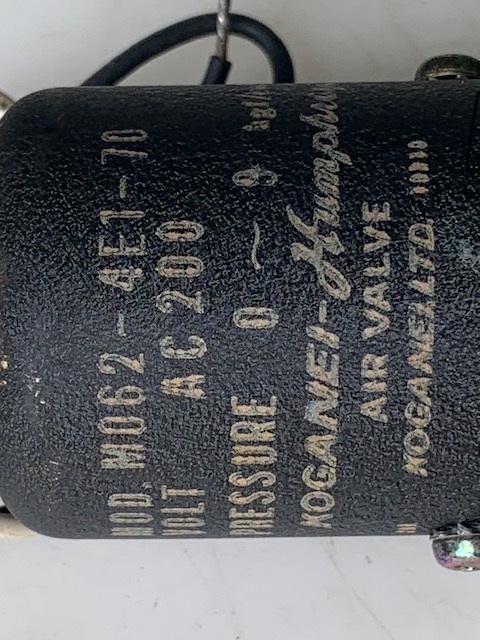 MOD. M062-4E1-70
VOLT AC 200
PRESSURE 0 ~ 9
KOGANEI-Humphrey
AIR VALVE
KOGANEI LTD.